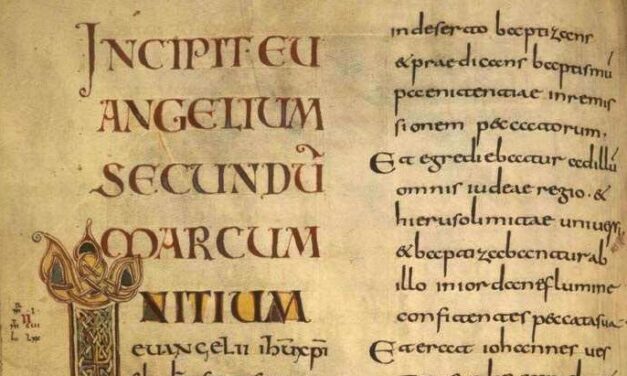 INCIPIT EU
ANGELIUM
SECUNDŪ
MARCUM
INITIUM
euangelii ihu xpi
in deserto baptizans
& praedicans baptismū
paenitentiae in remis
sionem peccatorum,
Et egrediebatur ad illū
omnis iudeae regio. &
hierusolimitae uniuersi
& baptizabantur ab
illo in iordane flumine
confitentes peccata sua
Et erat iohannes ves